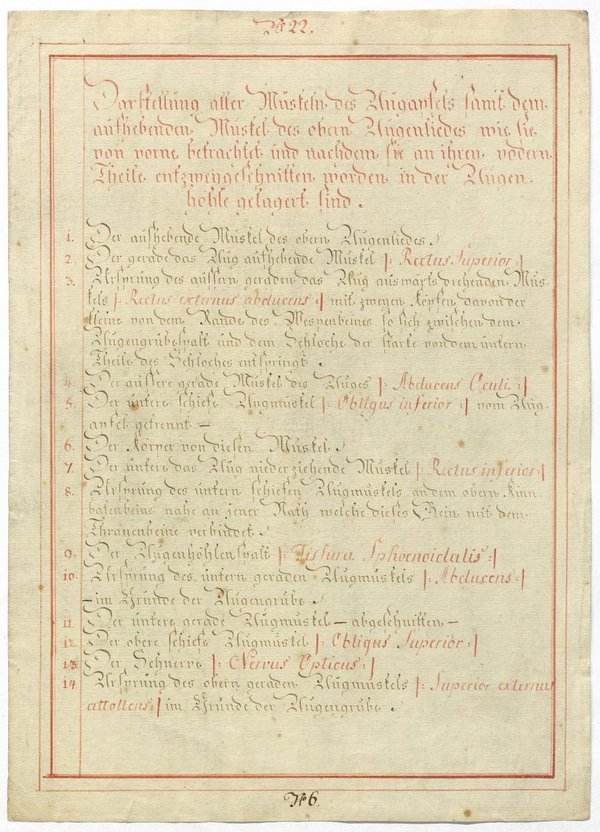 No 22.
Darstellung aller Muskeln des Augapfels samt dem
aufhebenden Muskel des obern Augenliedes wie sie
von vorne betrachtet und nachdem sie an ihren vodern
Theile entzweygeschnitten worden in der Augen
höhle gelagert sind.
1. Der aufhebende Muskel des obern Augenliedes.
2. Der gerade das Aug aufhebende Muskel |: Rectus Superior :|
3. Ursprung des aussern geraden das Aug auswärts drehenden Mus-
kels |: Rectus externus abducens :| mit zweyen Köpfen davon der
kleine von dem Rande des Wespenbeines so sich zwischen dem
Augengrubespalt und dem Sehloche der starke von dem untern
Theile des Sehloches entspringt.
4. Der aussere gerade Muskel des Auges |: Abducens Oculi :|
5. Der untere schiefe Augmuskel |: Obliqus inferior :| vom Aug-
apfel getrennt —
6. Der Körper von diesen Muskel.
7. Der untere das Aug niederziehende Muskel |: Rectus inferior :|
8. Ursprung des untern schiefen Augmuskels an dem obern Kinn
bakenbeine nahe an jener Nath welche dieses Bein mit dem
Thränenbeine verbindet.
9. Der Augenhöhlenspalt |: Fissura Sphoenoidalis :|
10. Ursprung des untern geraden Augmuskels |: Abducens :|
— im Grunde der Augengrube.
11. Der untere gerade Augmuskel — abgeschnitten —
12. Der obere schiefe Augmuskel |: Obliqus Superior :|
13. Der Sehnerve |: Nervus Opticus :|
14 Ursprung des obern geraden Augmuskels |: Superior externus
attollens :| im Grunde der Augengrube.
No 6.